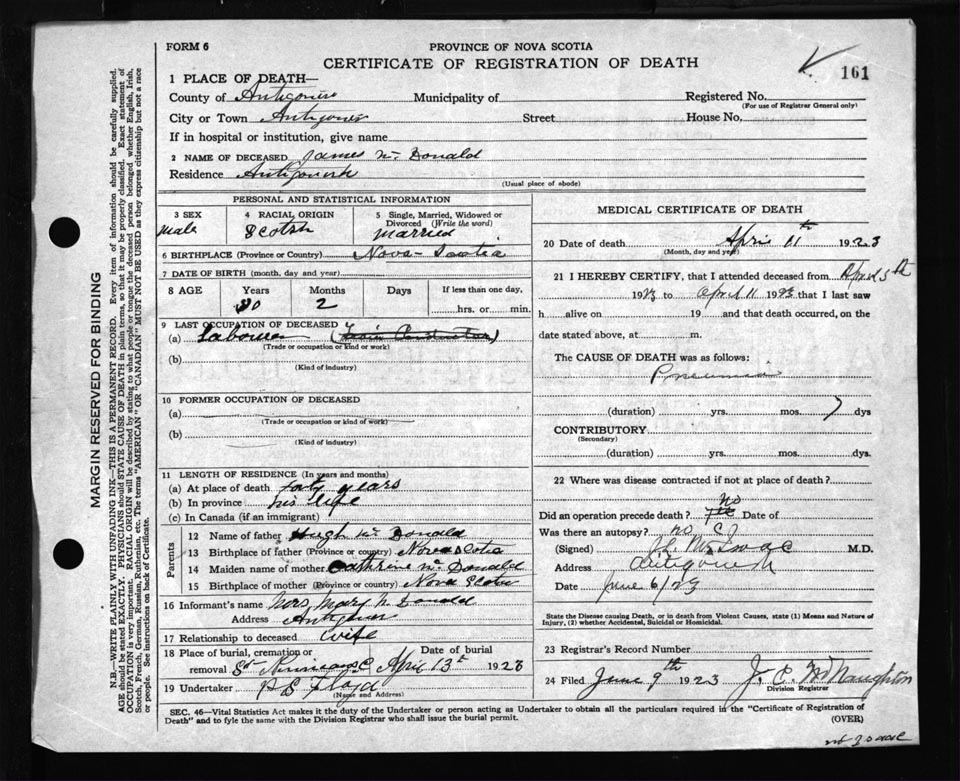 FORM 6
PROVINCE OF NOVA SCOTIA
CERTIFICATE OF REGISTRATION OF DEATH
161
1 PLACE OF DEATH—
County of Antigonish Municipality of Registered No.
(For use of Registrar General only)
City or Town Antigonish Street House No.
If in hospital or institution, give name
2 NAME OF DECEASED James Mc Donald
Residence Antigonish
(Usual place of abode)
PERSONAL AND STATISTICAL INFORMATION
3 SEX 4 RACIAL ORIGIN 5 Single, Married, Widowed or Divorced (Write the word)
male Scotch Married
6 BIRTHPLACE (Province or Country) Nova-Scotia
7 DATE OF BIRTH (month, day and year)
8 AGE Years Months Days If less than one day,
80 2 hrs. or min.
9 LAST OCCUPATION OF DECEASED
(a) Labourer
(Trade or occupation or kind or work)
(b)
(Kind of industry)
10 FORMER OCCUPATION OF DECEASED
(a)
(Trade or occupation or kind or work)
(b)
(Kind of industry)
11 LENGTH OF RESIDENCE (In years and months)
(a) At place of death forty years
(b) In province his life
(c) In Canada (if an immigrant)
Parents
12 Name of father Hugh Mc Donald
13 Birthplace of father (Province or country) Nova Scotia
14 Maiden name of mother Cathrine Mc Donald
15 Birthplace of mother (Province or country) Nova Scotia
16 Informant's name Mrs Mary Mc Donald
Address Antigonish
17 Relationship to deceased Wife
18 Place of burial, cremation or removal St April 13th Date of burial 1923
19 Undertaker P S Floyd
(Name and Address)
MEDICAL CERTIFICATE OF DEATH
20 Date of death April 11th 1923
(Month, day and year)
21 I HEREBY CERTIFY, that I attended deceased from April 5th
1923 to April 11 1923 that I last saw
h alive on 19 and that death occurred, on the
date stated above, at m.
The CAUSE OF DEATH was as follows:
Pneumonia
(duration) yrs. mos. 7 dys
CONTRIBUTORY
(Secondary)
(duration) yrs. mos. dys.
22 Where was disease contracted if not at place of death?
Did an operation precede death? no Date of
Was there an autopsy? no
(Signed) M.D.
Address Antigonish
Date June 6/23
State the Disease causing Death, or in death from Violent Causes, state (1) Means and Nature of Injury, (2) whether Accidental, Suicidal or Homicidal.
23 Registrar's Record Number
24 Filed June 9th 1923 J. C. McNaughton
Division Registrar
SEC. 46—Vital Statistics Act makes it the duty of the Undertaker or person acting as Undertaker to obtain all the particulars required in the "Certificate of Registration of
Death" and to fyle the same with the Division Registrar who shall issue the burial permit.
(OVER)
MARGIN RESERVED FOR BINDING
N.B.—WRITE PLAINLY WITH UNFADING INK—THIS IS A PERMANENT RECORD. Every item of information should be carefully supplied.
AGE should be stated EXACTLY. PHYSICIANS should STATE CAUSE OF DEATH in plain terms, so that it may be properly classified. Exact statement of
OCCUPATION is very important. RACIAL ORIGIN will be described by stating to what people or tongue the deceased person belonged whether English, Irish,
Scotch, French, German, Russian, Ruthenian, etc. The terms "AMERICAN" OR "CANADIAN" MUST NOT BE USED as they express citizenship but not a race
or people. See instructions on back of Certificate.